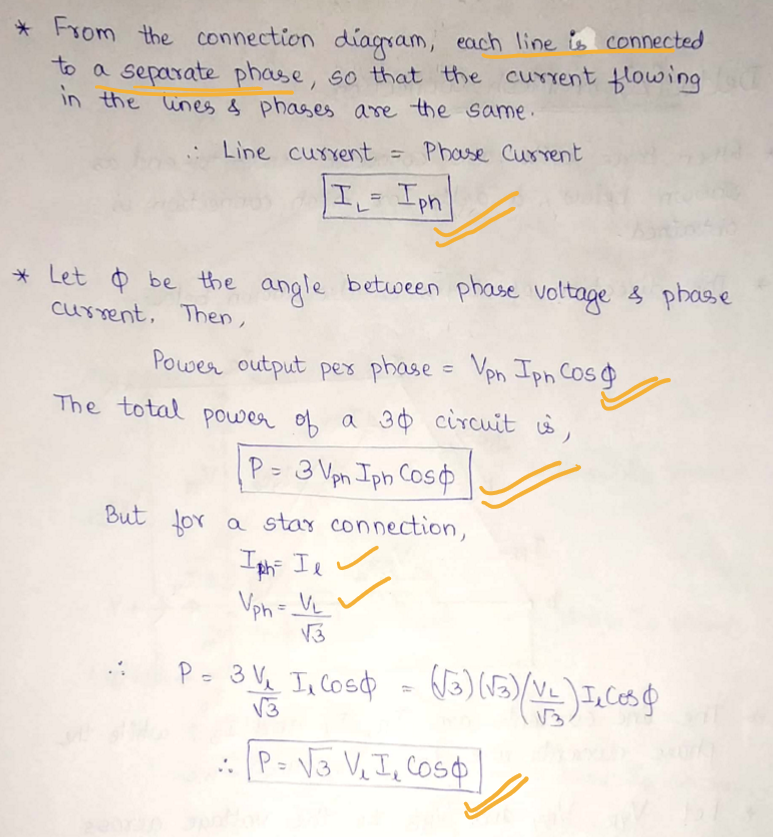 * From the connection diagram, each line is connected
to a separate phase, so that the current flowing
in the lines & phases are the same.
∴ Line current = Phase Current
I_L = I_ph
* Let φ be the angle between phase voltage & phase
current. Then,
Power output per phase = V_ph I_ph Cosφ
The total power of a 3φ circuit is,
P = 3 V_ph I_ph Cosφ
But for a star connection,
I_ph = I_l
V_ph = V_L/√3
∴ P = 3 V_l/√3 I_l Cosφ = (√3)(√3)(V_L/√3) I_l Cosφ
∴ P = √3 V_l I_l Cosφ